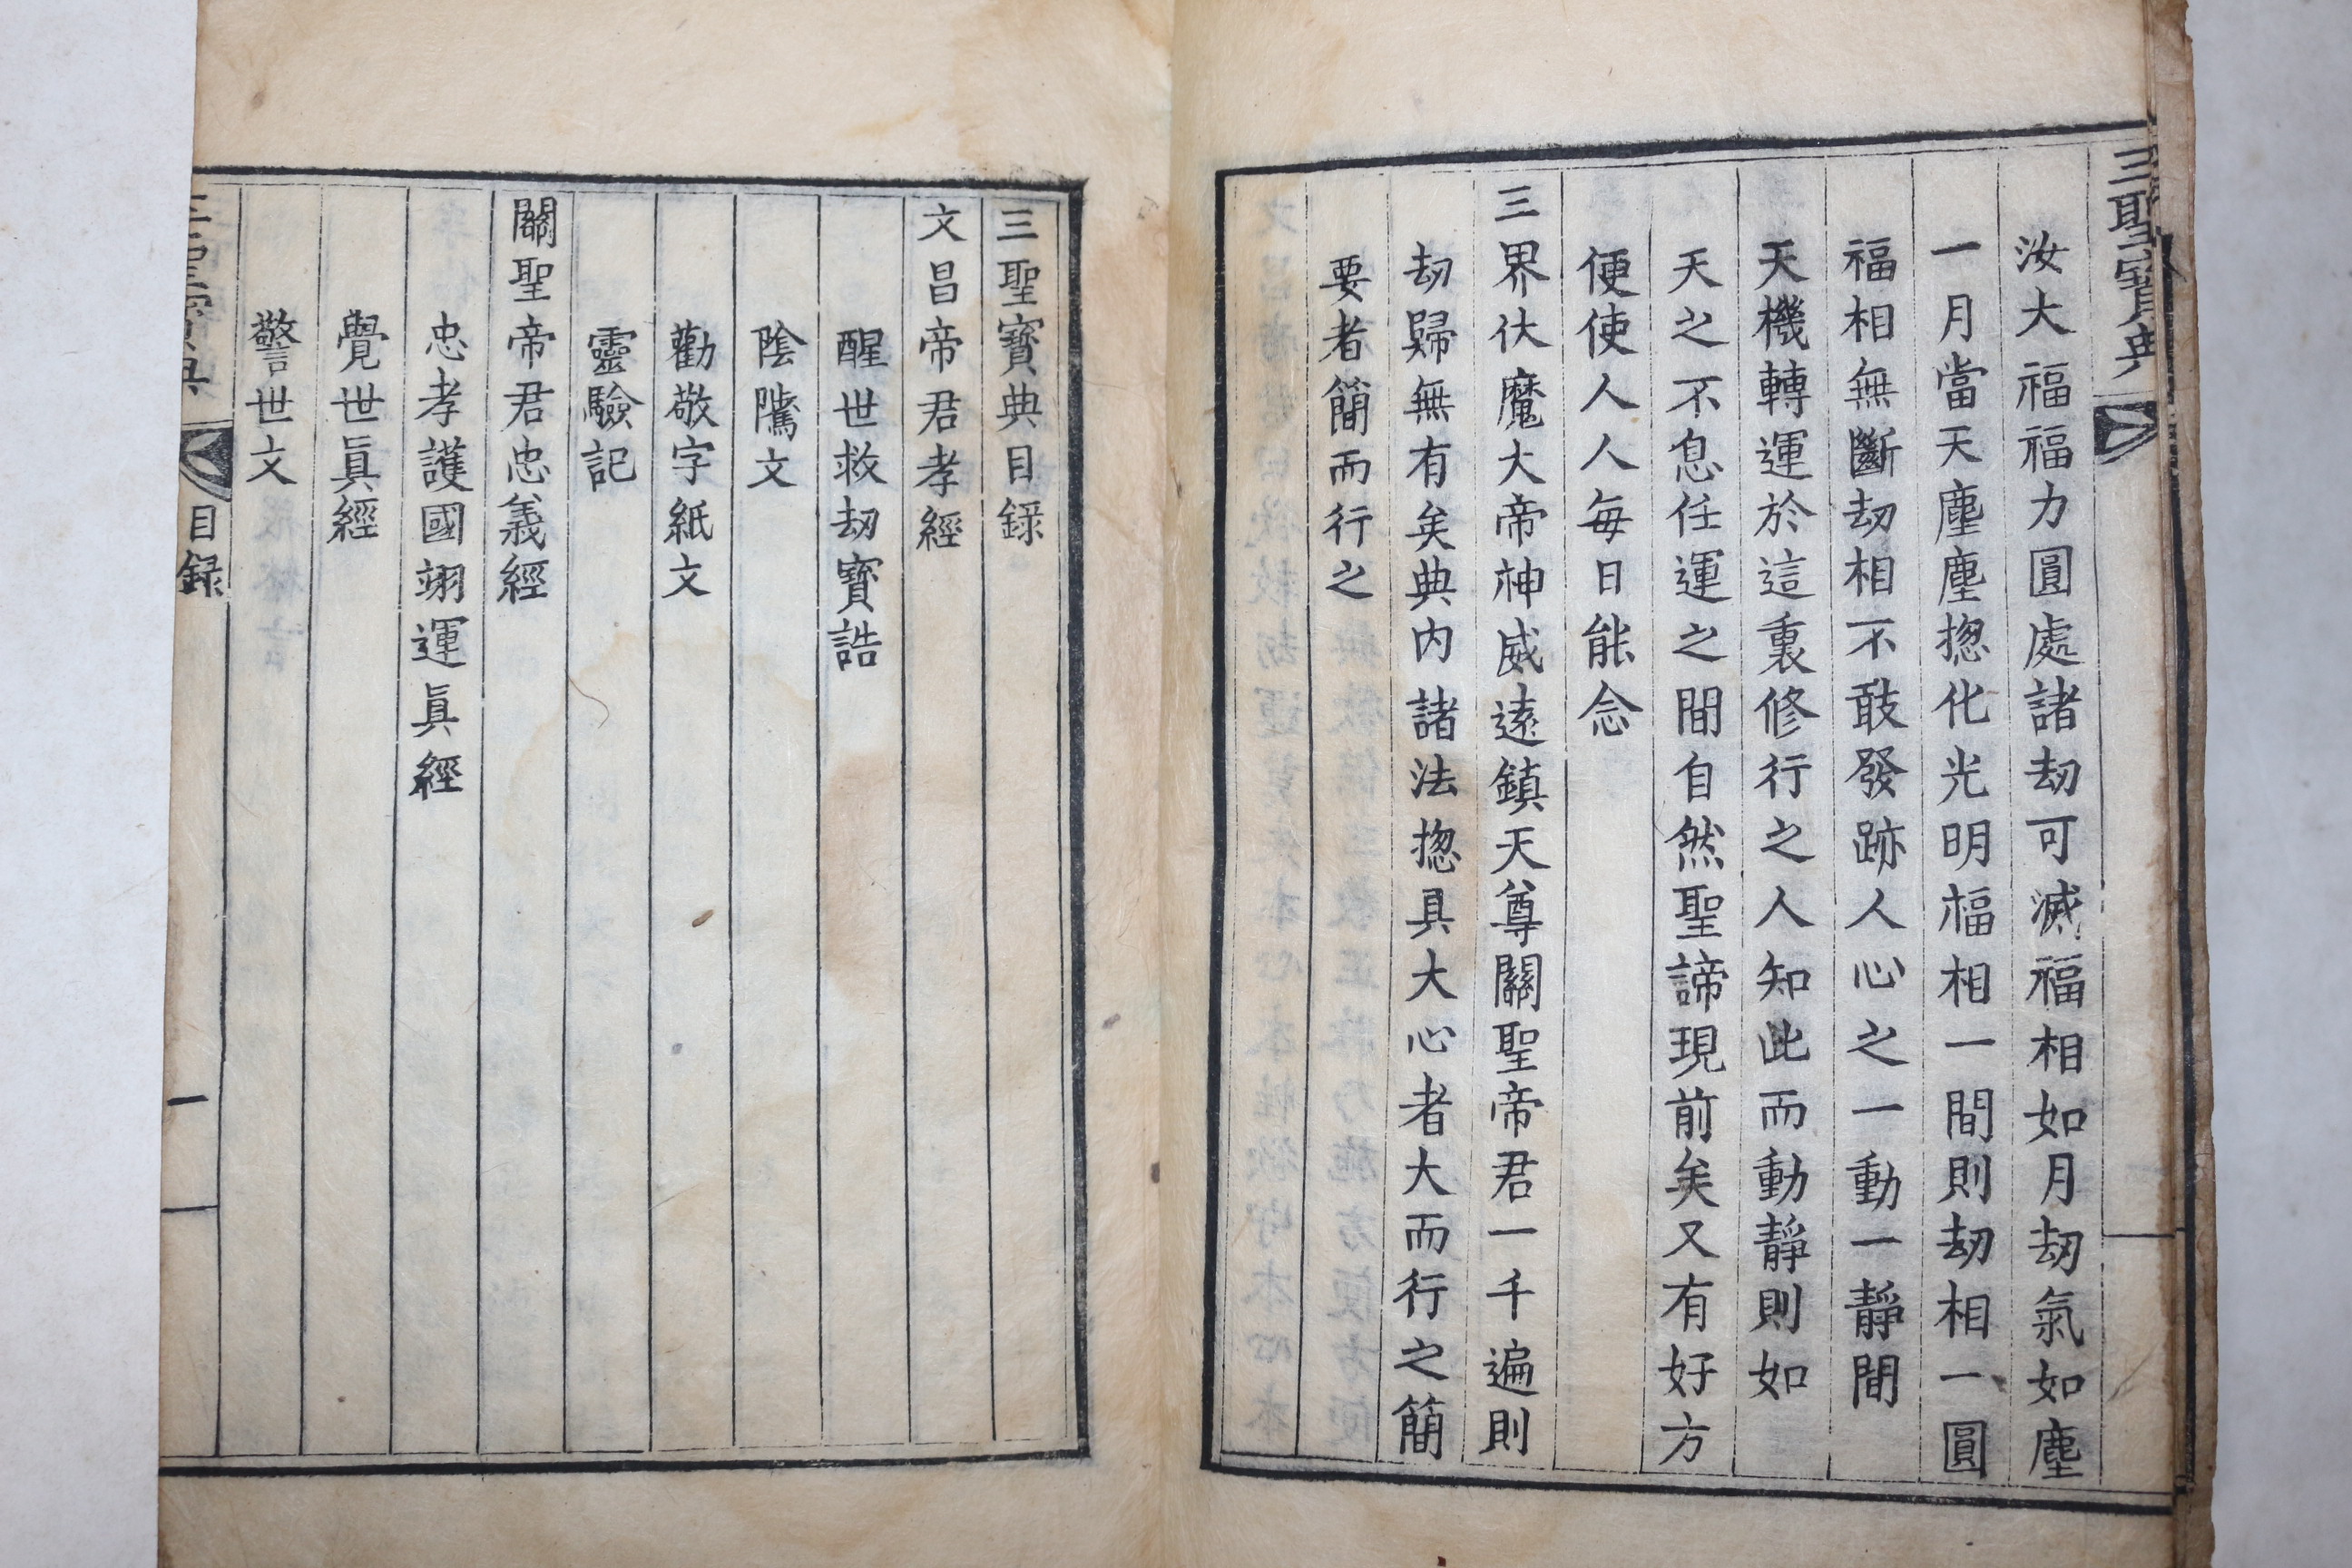 三聖寶典
汝大福福力圓處諸刼可滅福相如月刼氣如塵
一月當天塵塵揔化光明福相一間則刼相一圓
福相無斷刼相不敢發跡人心之一動一靜間
天機轉運於這裏修行之人知此而動靜則如
天之不息任運之間自然聖諦現前矣又有好方
便使人人每日能念
三界伏魔大帝神威遠鎮天尊關聖帝君一千遍則
刼歸無有矣典內諸法揔具大心者大而行之簡
要者簡而行之
三聖寶典目錄
文昌帝君孝經
醒世救刼寶誥
陰隲文
勸敬字紙文
靈驗記
關聖帝君忠義經
忠孝護國翊運眞經
覺世眞經
警世文
三聖寶典 目録 一